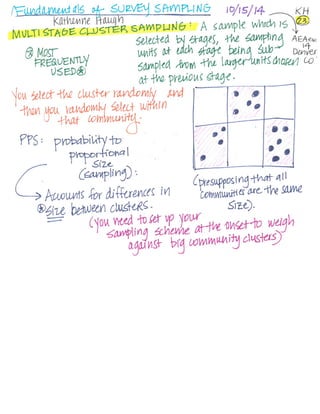 Fundamentals of SURVEY SAMPLING 10/15/14 KH
Katherine Haugh 23
MULTI STAGE CLUSTER SAMPLING: A sample which is
selected by stages, the sampling
units at each stage being sub-
sampled from the larger units chosen
at the previous stage.
AEA
14
Denver
CO
MOST
FREQUENTLY
USED
You select the cluster randomly and
then you randomly select within
that community.
PPS: probability to
proportional
size
(sampling):
Accounts for differences in
size between clusters.
(presupposing that all
communities are the same
size).
(you need to set up your
sampling scheme at the onset to weigh
against big community clusters)